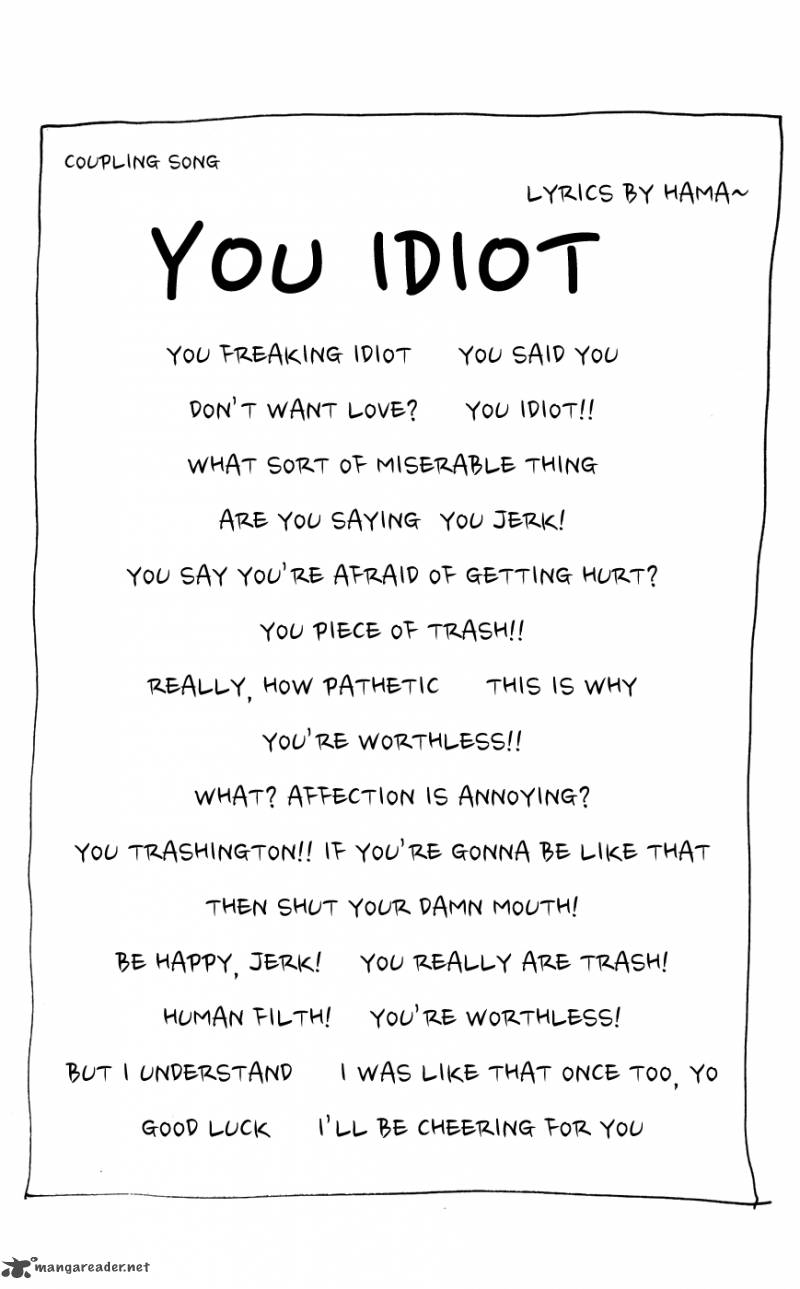 COUPLING SONG
LYRICS BY HAMA~
YOU IDIOT
YOU FREAKING IDIOT YOU SAID YOU
DON'T WANT LOVE? YOU IDIOT!!
WHAT SORT OF MISERABLE THING
ARE YOU SAYING YOU JERK!
YOU SAY YOU'RE AFRAID OF GETTING HURT?
YOU PIECE OF TRASH!!
REALLY, HOW PATHETIC THIS IS WHY
YOU'RE WORTHLESS!!
WHAT? AFFECTION IS ANNOYING?
YOU TRASHINGTON!! IF YOU'RE GONNA BE LIKE THAT
THEN SHUT YOUR DAMN MOUTH!
BE HAPPY, JERK! YOU REALLY ARE TRASH!
HUMAN FILTH! YOU'RE WORTHLESS!
BUT I UNDERSTAND I WAS LIKE THAT ONCE TOO, YO
GOOD LUCK I'LL BE CHEERING FOR YOU
mangareader.net